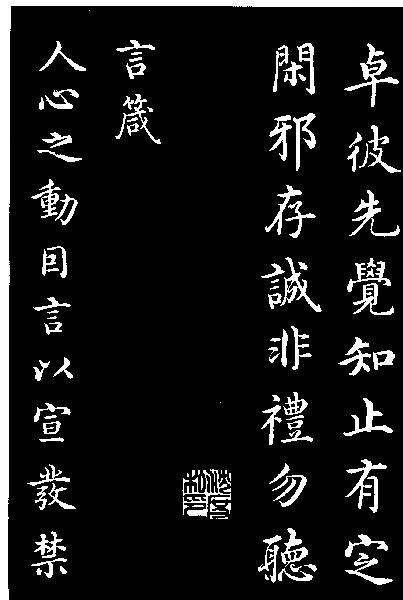 卓彼先覺知止有定
閑邪存誠非禮勿聽
言箴
人心之動因言以宣發禁